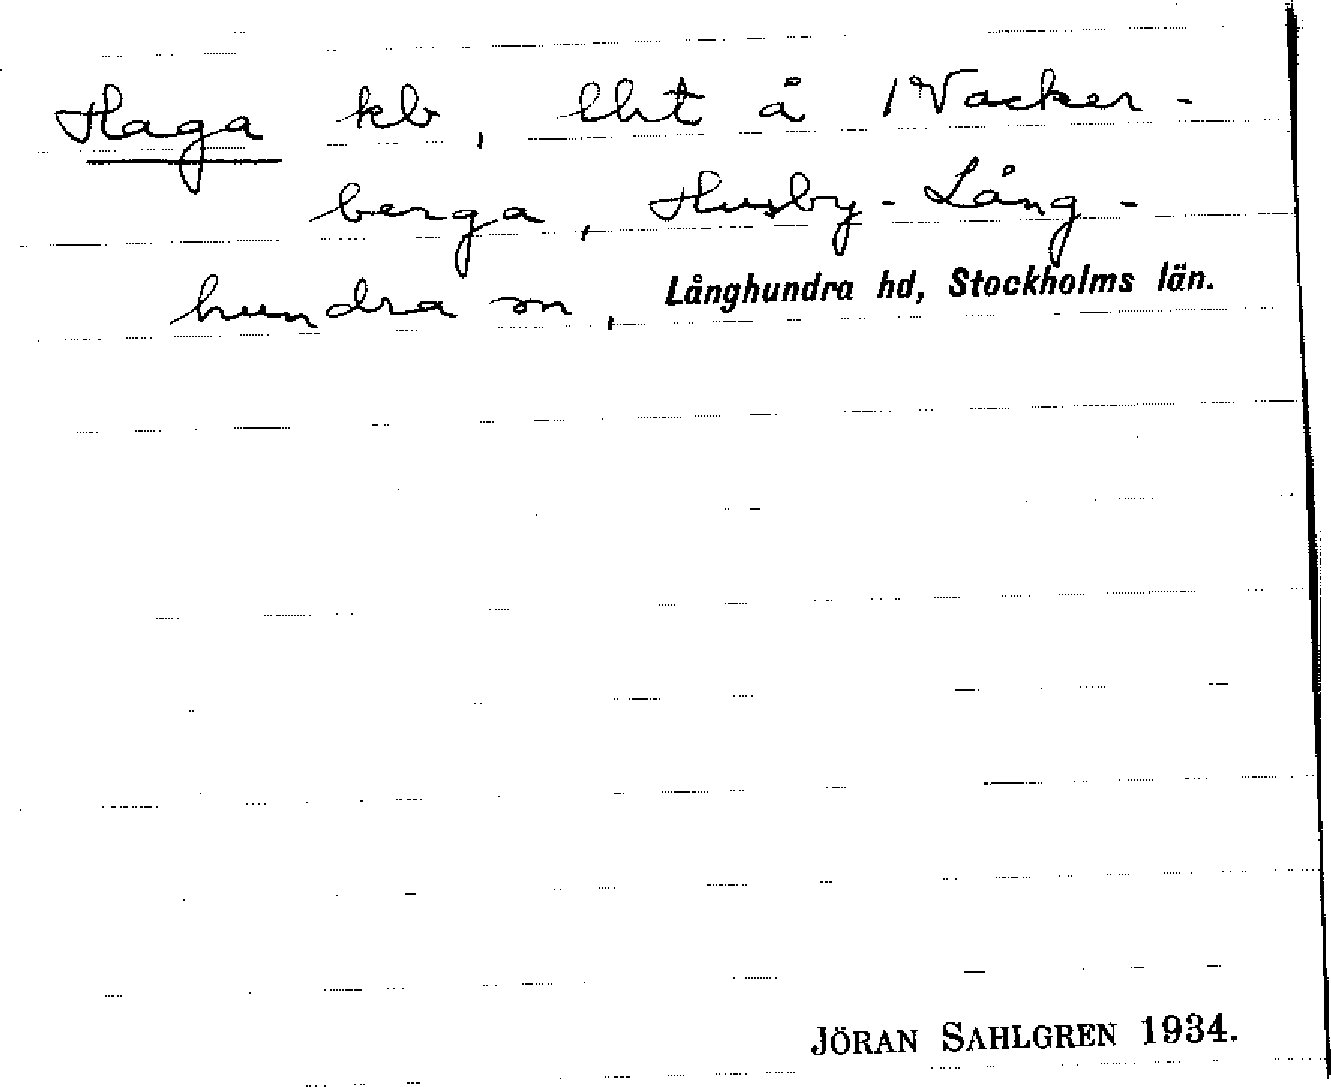 Haga kb, lht å 1 Vacker-
berga, Husby-Lång-
hundra sn, Långhundra hd, Stockholms län.
JÖRAN SAHLGREN 1934.